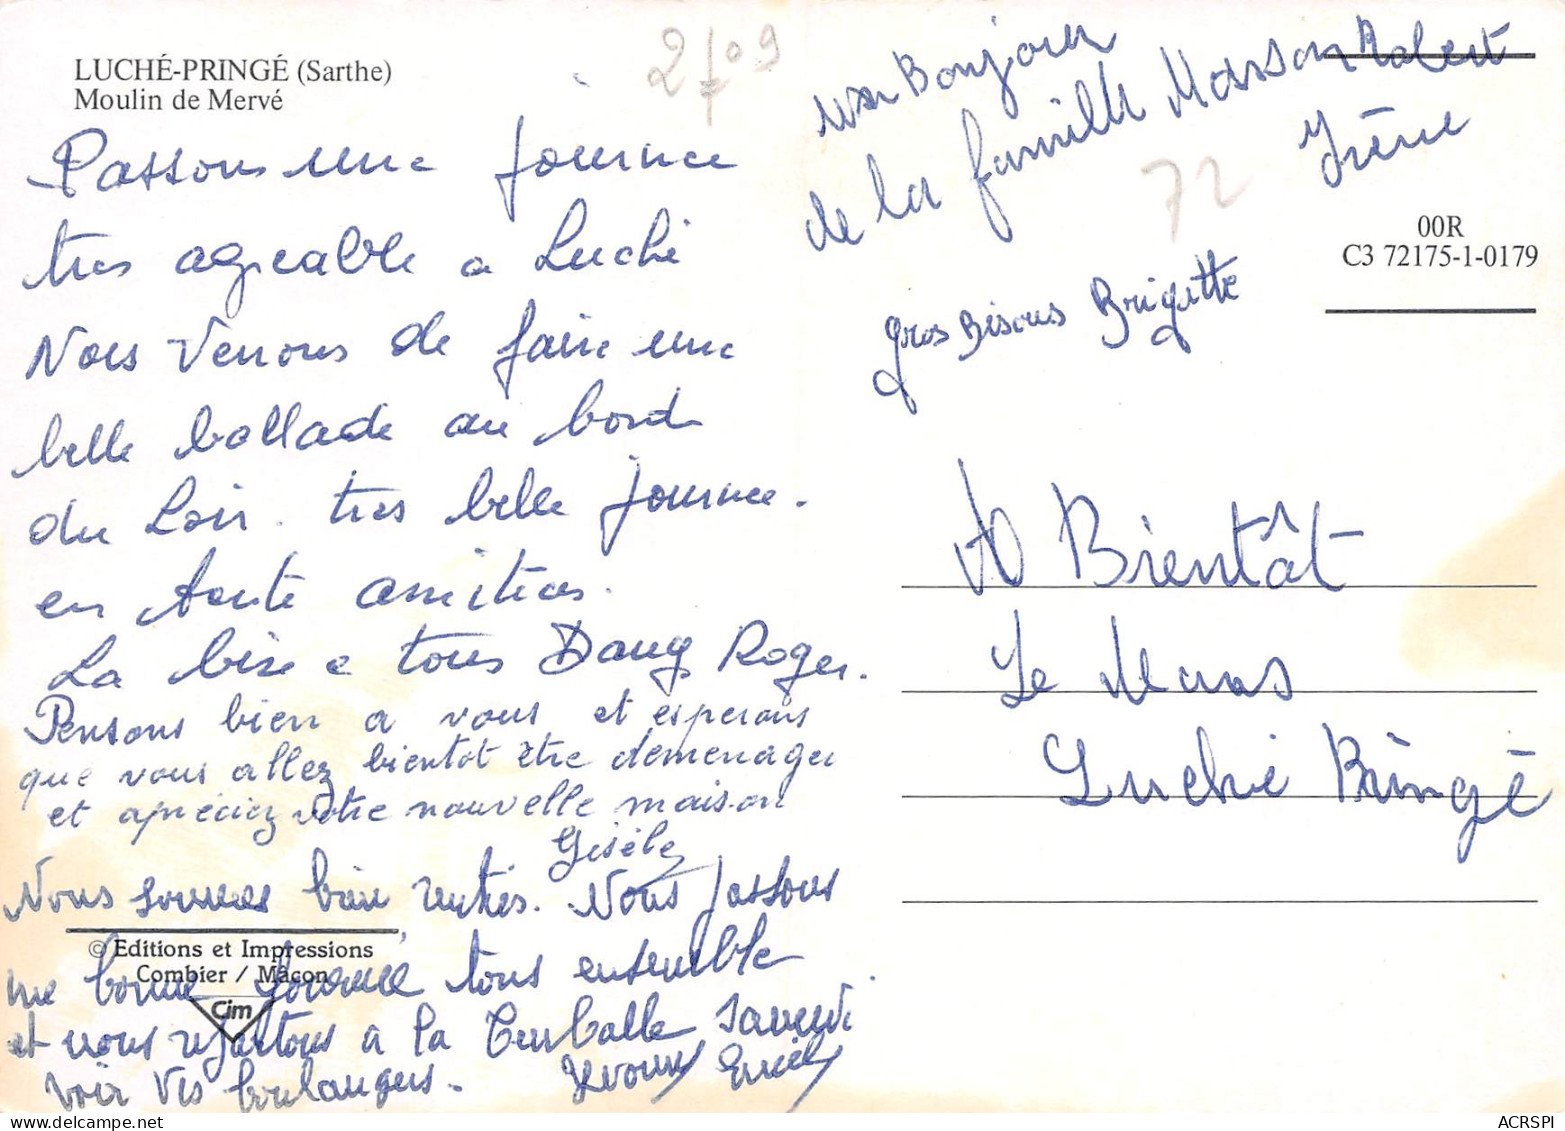 LUCHÉ-PRINGÉ (Sarthe)
Moulin de Mervé
Passons une journee
tres agreable a Luché
Nous Venons de faire une
belle ballade au bord
du Loir. tres belle journee.
en toute amities.
La bise a tous Dany Roger.
Pensons bien a vous et esperons
que vous allez bientot être demenager
et apréciez votre nouvelle maison
Gisèle
Nous sommes bien rentrés. Nous passons
une bonne journée tous ensemble
et nous repartons à la Turballe samedi
voir les boulangers. Yvonne
© Editions et Impressions
Combier / Mâcon
Cim
2 09
un Bonjour
de la famille Masson Robert
Irène
72
00R
C3 72175-1-0179
gros Bisous Brigitte
A Bientât
Le Mans
Luché Pringé
ACRSPI